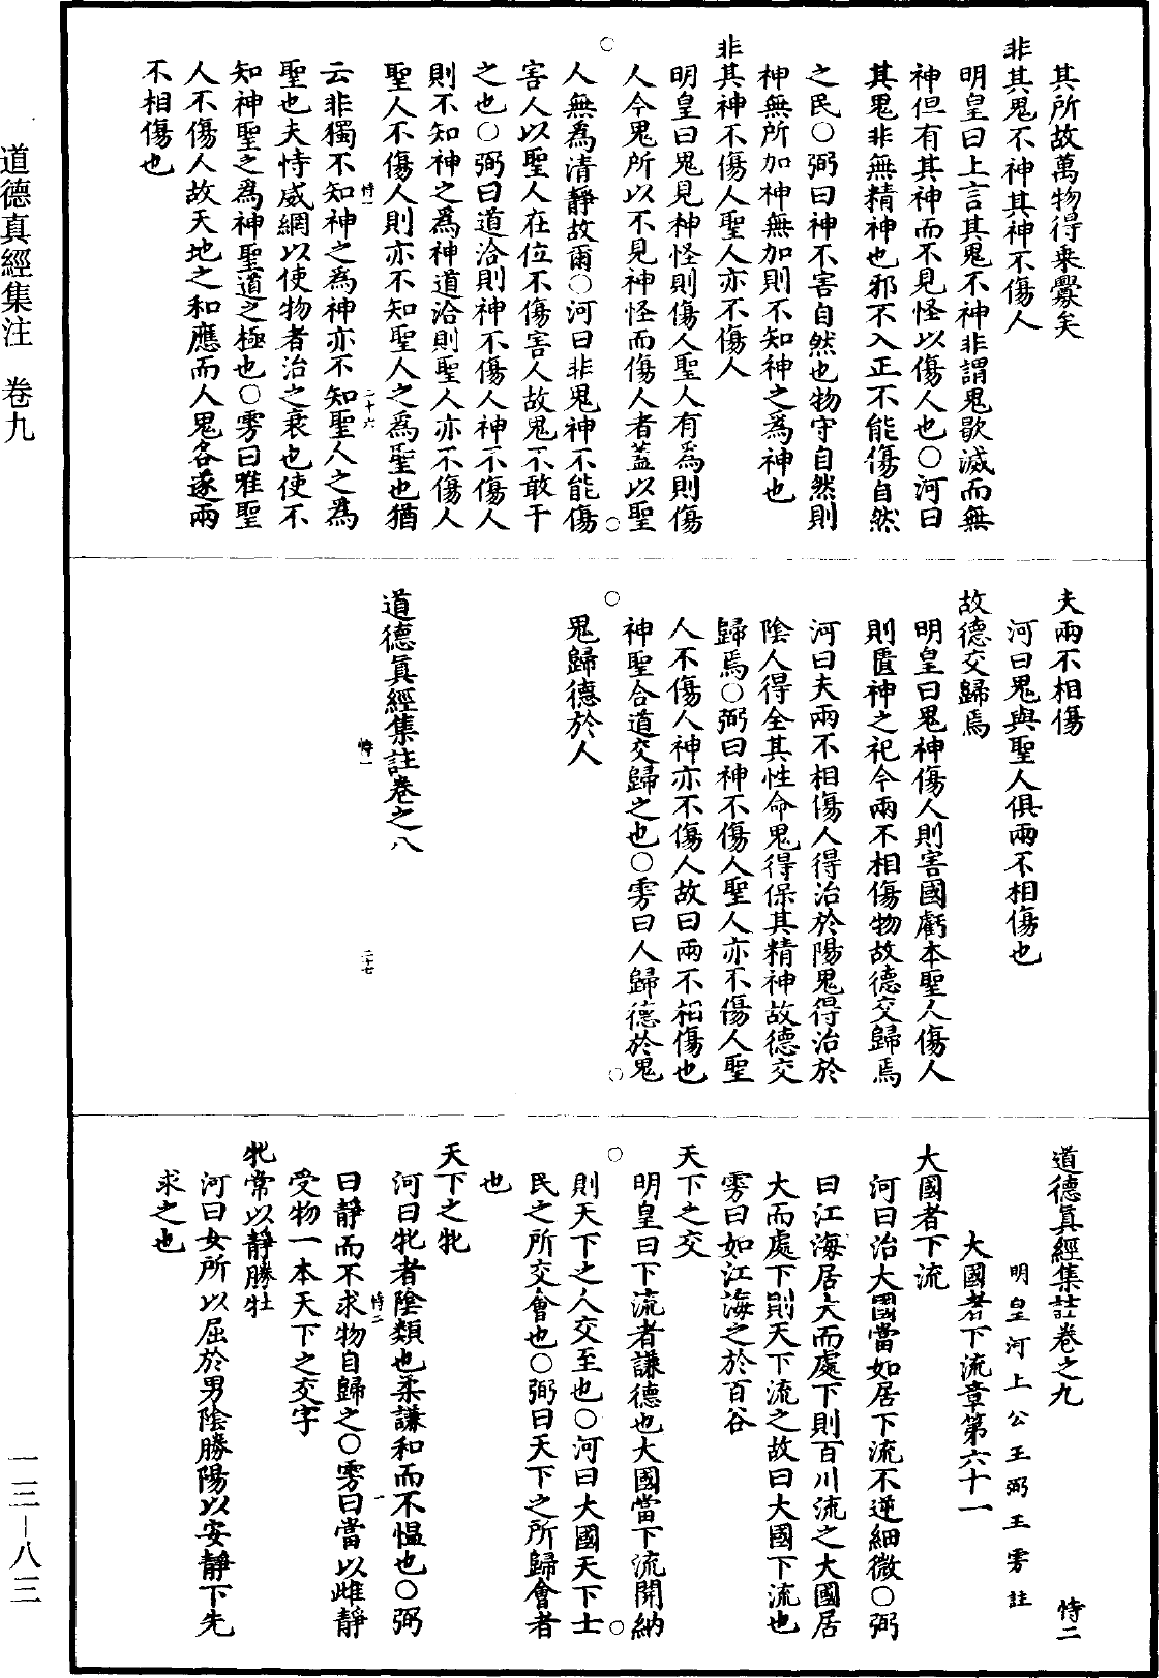 其所故萬物得乘釁矣
非其鬼不神其神不傷人
明皇曰上言其鬼不神非謂鬼歇滅而無
神但有其神而不見怪以傷人也○河曰
其鬼非無精神也邪不入正不能傷自然
之民○弼曰神不害自然也物守自然則
神無所加神無加則不知神之爲神也
非其神不傷人聖人亦不傷人
明皇曰鬼見神怪則傷人聖人有爲則傷
人今鬼所以不見神怪而傷人者蓋以聖
人無爲清靜故爾○河曰非鬼神不能傷
害人以聖人在位不傷害人故鬼不敢干
之也○弼曰道洽則神不傷人神不傷人
則不知神之爲神道洽則聖人亦不傷人
聖人不傷人則亦不知聖人之爲聖也猶
恃一 二十六
云非獨不知神之爲神亦不知聖人之爲
聖也夫恃威網以使物者治之衰也使不
知神聖之爲神聖道之極也○雱曰唯聖
人不傷人故天地之和應而人鬼各遂兩
不相傷也
夫兩不相傷
河曰鬼與聖人俱兩不相傷也
故德交歸焉
明皇曰鬼神傷人則害國虧本聖人傷人
則匱神之祀今兩不相傷物故德交歸焉
河曰夫兩不相傷人得治於陽鬼得治於
陰人得全其性命鬼得保其精神故德交
歸焉○弼曰神不傷人聖人亦不傷人聖
人不傷人神亦不傷人故曰兩不相傷也
神聖合道交歸之也○雱曰人歸德於鬼
鬼歸德於人
道德眞經集註卷之八
恃一 二十七
道德眞經集註卷之九 恃二
明皇河上公王弼王雱註
大國者下流章第六十一
大國者下流
河曰治大國當如居下流不逆細微○弼
曰江海居大而處下則百川流之大國居
大而處下則天下流之故曰大國下流也
雱曰如江海之於百谷
天下之交
明皇曰下流者謙德也大國當下流開納
則天下之人交至也○河曰大國天下士
民之所交會也○弼曰天下之所歸會者
也
天下之牝
河曰牝者陰類也柔謙和而不愠也○弼
恃二 一
曰靜而不求物自歸之○雱曰當以雌靜
受物一本天下之交字
牝常以靜勝牡
河曰女所以屈於男陰勝陽以安靜下先
求之也
道德真經集注 卷九
一三－八三